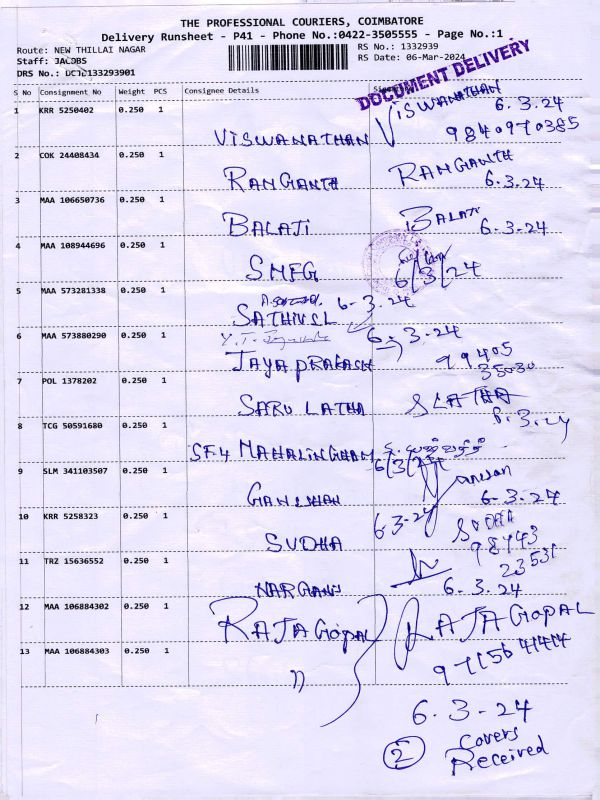 THE PROFESSIONAL COURIERS, COIMBATORE
Delivery Runsheet - P41 - Phone No.:0422-3505555 - Page No.:1
Route: NEW THILLAI NAGAR
Staff: JACOBS
RS No.: 1332939
RS Date: 06-Mar-2024
DOCUMENT DELIVERY
S No Consignment No Weight PCS Consignee Details
1 KRR 5250402 0.250 1 VISWANATHAN VISWANATHAN 6.3.24
9840970385
2 COK 24408434 0.250 1 RANGANTH RANGANTH
6.3.24
3 MAA 106650736 0.250 1 BALAJI BALAJI 6.3.24
4 MAA 108944696 0.250 1 SMFG 6/3/24
5 MAA 573281338 0.250 1 6-3.24
6 MAA 573880290 0.250 1 JAYAPRAKASH 6.3.24
99405
35030
7 POL 1378202 0.250 1 SARULATHA SLATHA
6.3.24
8 TCG 50591680 0.250 1 MAHALINGHAM
6/3/24
9 SLM 341103507 0.250 1 GANESHAN
6.3.24
10 KRR 5258323 0.250 1 SUDHA 6.3.24 SUDHA
98443
23531
11 TRZ 15636552 0.250 1
6.3.24
12 MAA 106884302 0.250 1 RAJAGOPAL RAJAGOPAL
13 MAA 106884303 0.250 1 "
6.3-24
2 Covers
Received